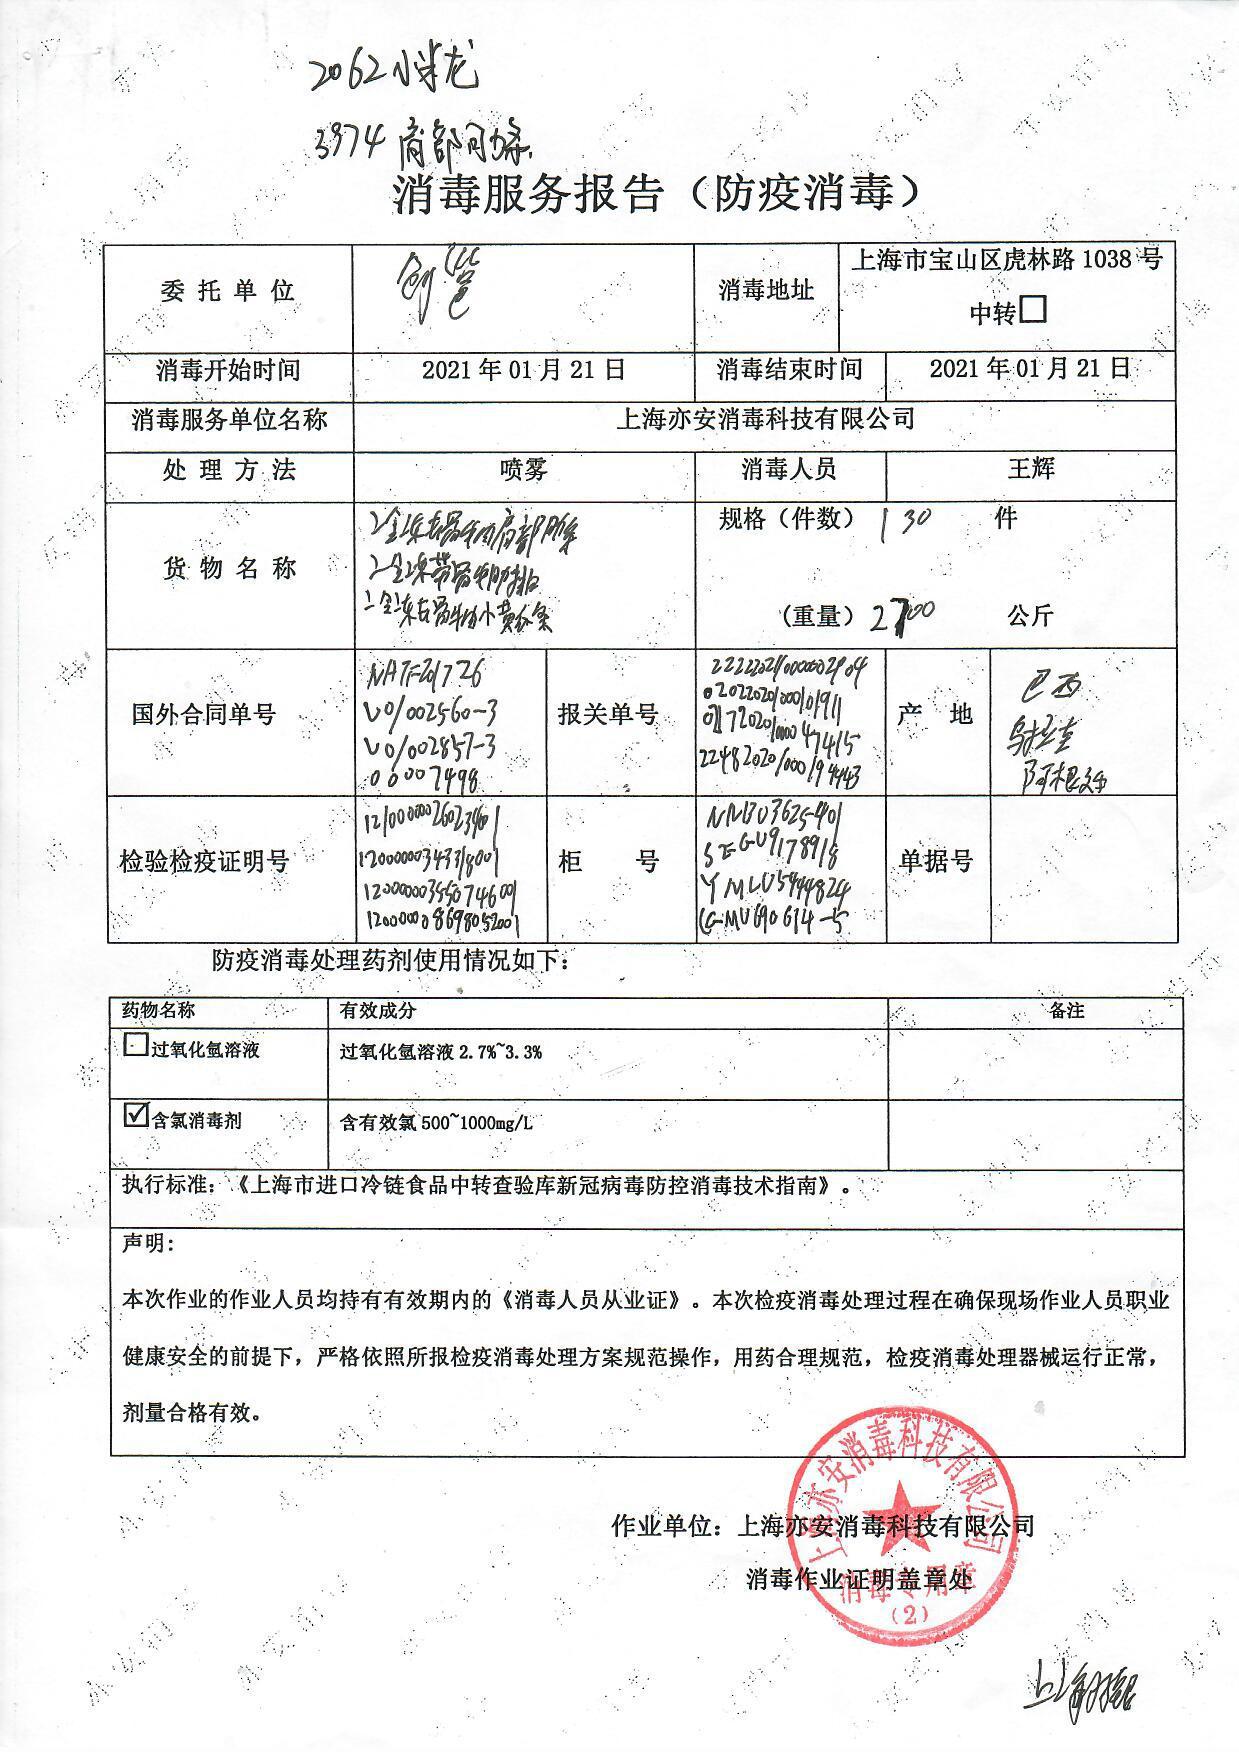 2062小米龙
3974肩部肋条
消毒服务报告（防疫消毒）
委托单位
消毒地址
上海市宝山区虎林路1038号
中转□
消毒开始时间
2021年01月21日
消毒结束时间
2021年01月21日
消毒服务单位名称
上海亦安消毒科技有限公司
处理方法
喷雾
消毒人员
王辉
货物名称
规格（件数）130 件
（重量）2700 公斤
国外合同单号
V0/002560-3
V0/002857-3
00007498
报关单号
产地
巴西
乌拉圭
阿根廷
检验检疫证明号
柜号
YMLU5444824
单据号
防疫消毒处理药剂使用情况如下：
药物名称
有效成分
备注
□过氧化氢溶液
过氧化氢溶液2.7%~3.3%
☑含氯消毒剂
含有效氯500~1000mg/L
执行标准：《上海市进口冷链食品中转查验库新冠病毒防控消毒技术指南》。
声明：
本次作业的作业人员均持有有效期内的《消毒人员从业证》。本次检疫消毒处理过程在确保现场作业人员职业
健康安全的前提下，严格依照所报检疫消毒处理方案规范操作，用药合理规范，检疫消毒处理器械运行正常，
剂量合格有效。
作业单位：上海亦安消毒科技有限公司
消毒作业证明盖章处
上海亦安消毒科技有限公司
消毒专用章
（2）